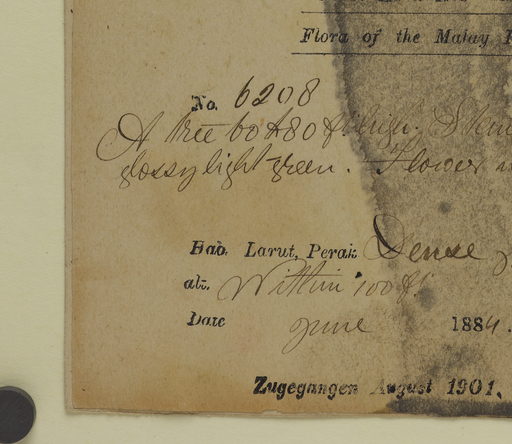 Flora of the Malay
No. 6208
A tree 60 to 80 ft high.
glossy light green. Flower
Hab. Larut, Perak. Dense
alt. Within 100 ft.
Date June 1884.
Zugegangen August 1901.